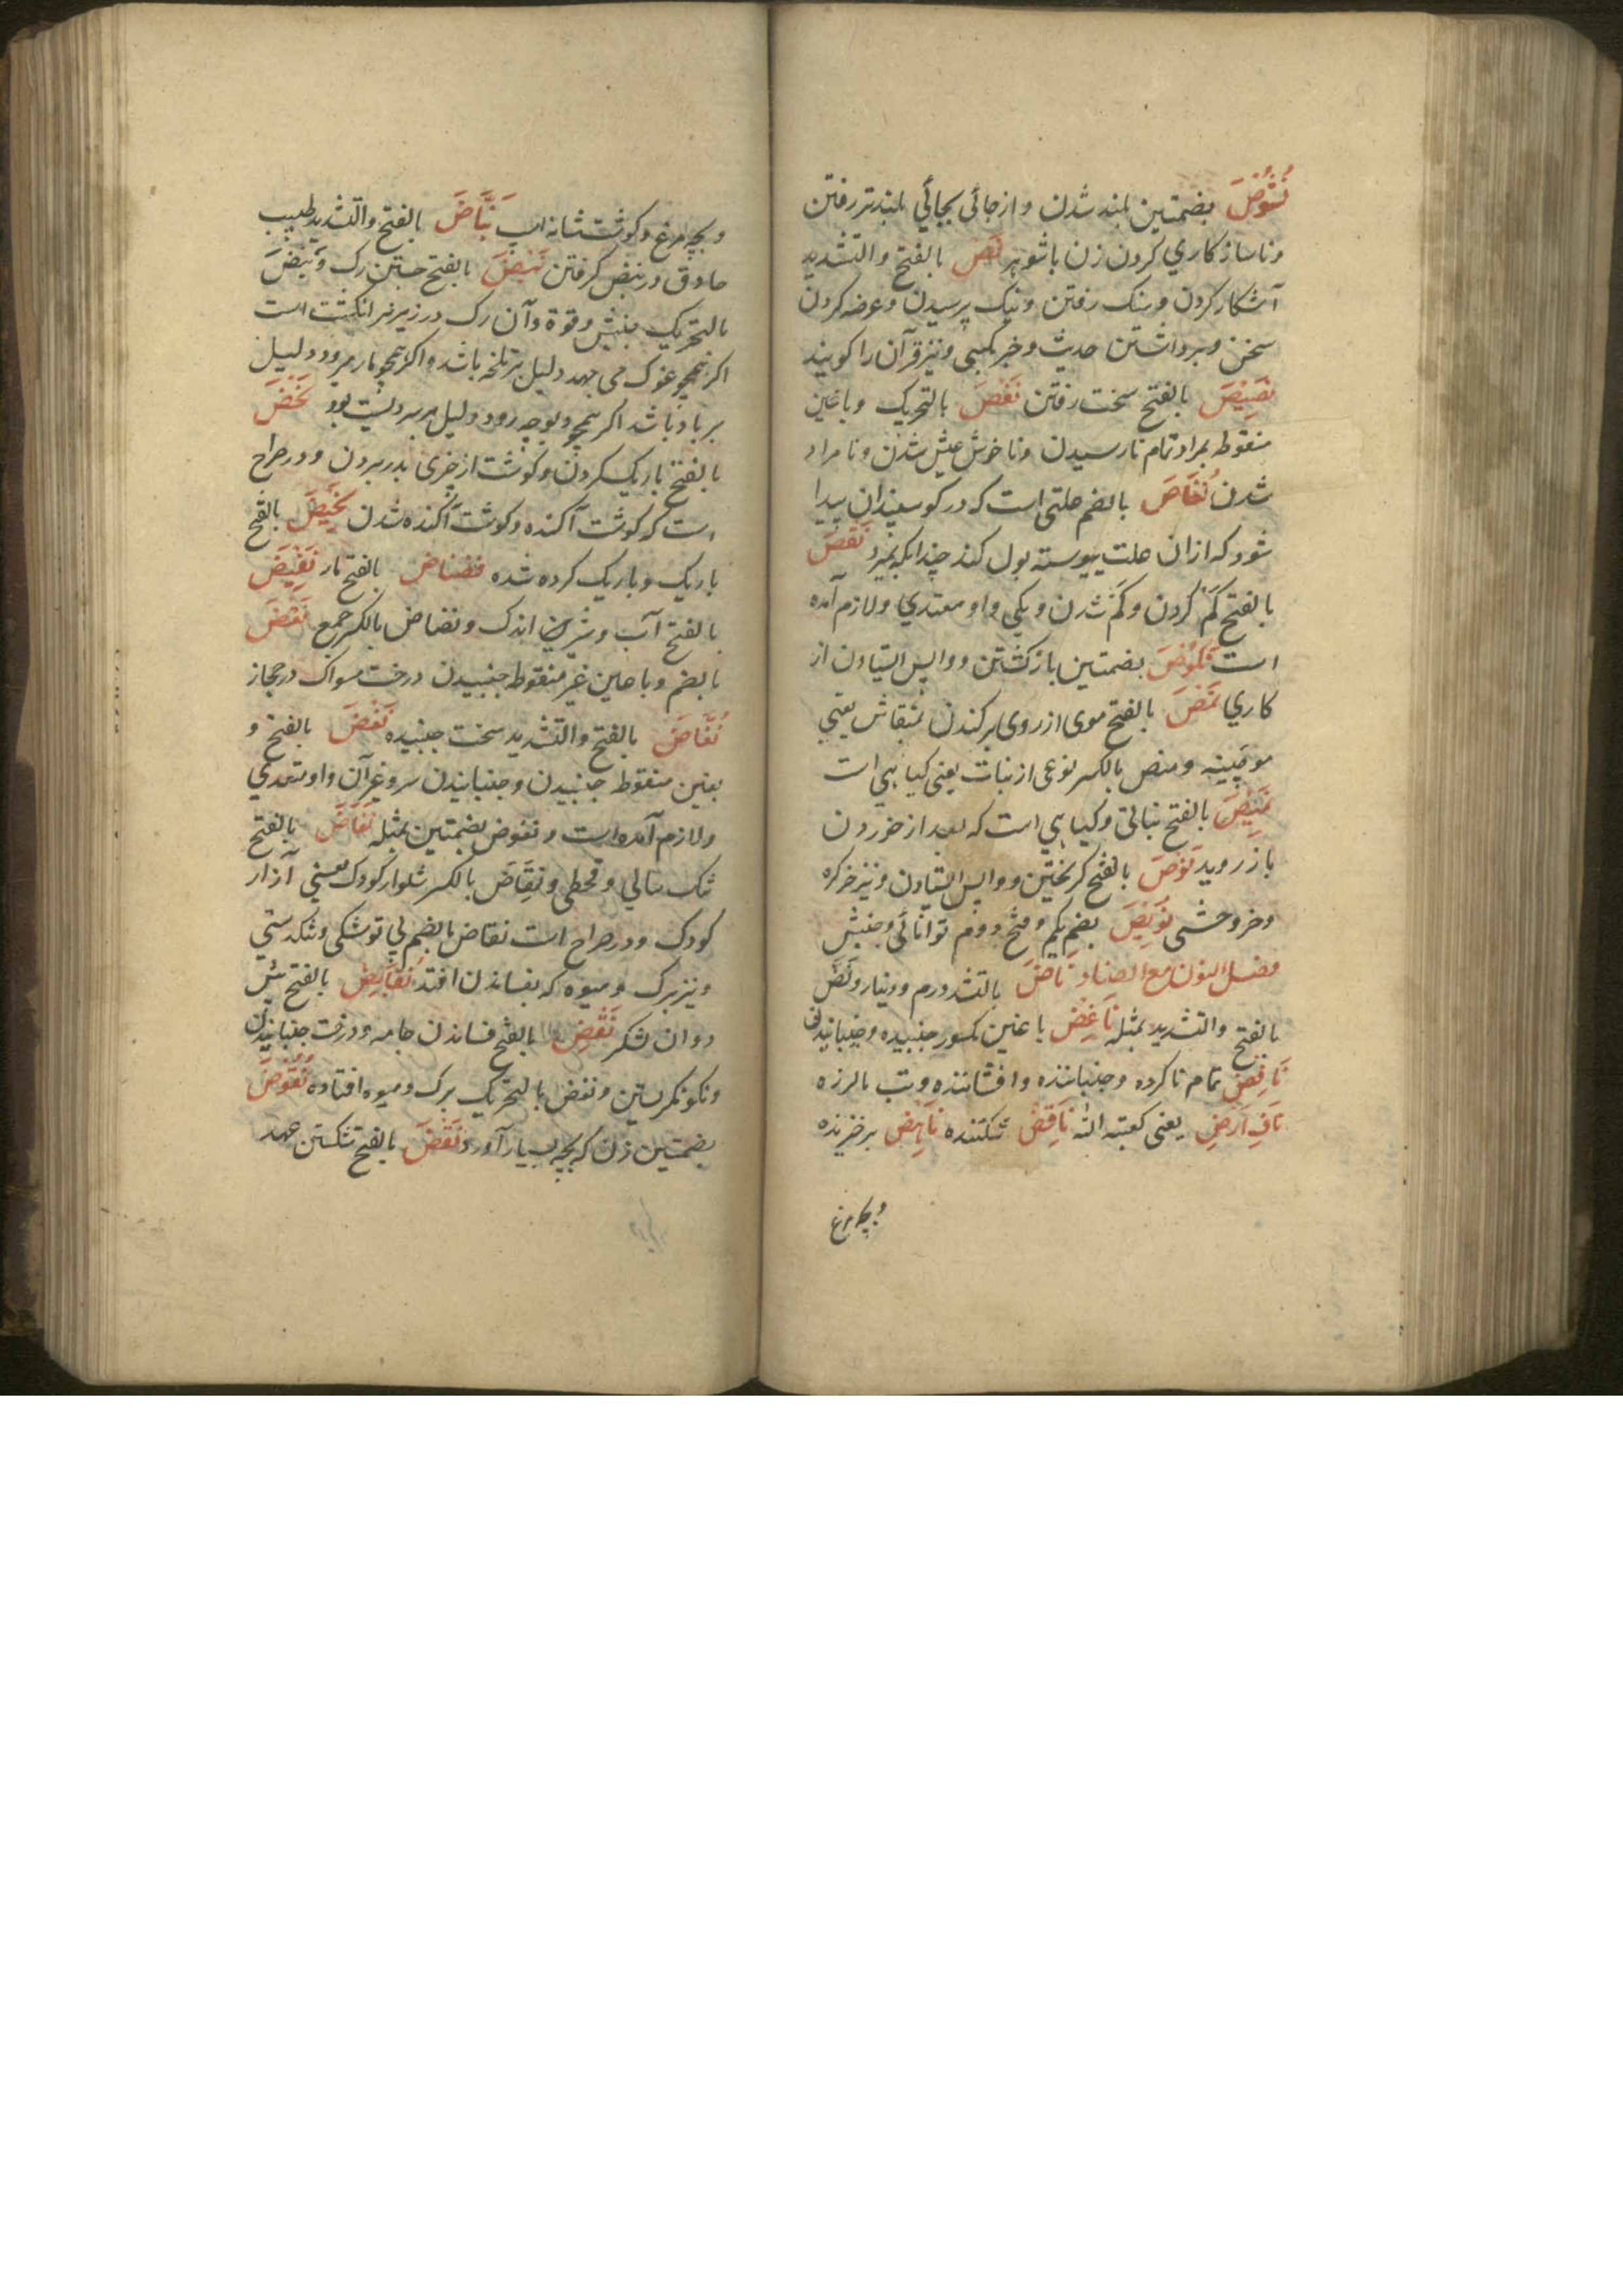 نُشُوُصَ بضمتین بلند شدن و از جائی بجائی بلندتر رفتن
و ناسازکاری کردن زن با شوهر نَصَ بالفتح والتشدید
آشکار کردن و نیک رفتن و نیک پرسیدن و عرضه کردن
سخن و برداشتن حدیث و خبر بکسی و نیز قرآن را کویند
نَصِیْصَ بالفتح سخت رفتن نَغَصَ بالتحریک و با غین
منقوطه بمراد تمام نارسیدن و ناخوش عیش شدن و نامراد
شدن نُغَاصَ بالضم علتی است که در کوسفندان پیدا
شود که از ان علت پیوسته بول کند چندانکه بمیرد نَقْصَ
بالفتح کم کردن و کم شدن و یکی و او متعدی و لازم آمده
است نُکُوْصَ بضمتین بازکشتن و واپس ایستادن از
کاری نَمْصَ بالفتح موی از روی برکندن بمنقاش یعنی
موچینه و نمص بالکسر نوعی از نبات یعنی کیاهی است
نَمِیْصَ بالفتح نباتی و کیاهی است که بعد از خوردن
باز روید نَوْصَ بالفتح کریختن و واپس ایستادن و نیز خرکره
و خر وحشی نُوَیْصَ بضم یکم و فتح دوم توانائی و جنبش
فصل النون مع الضاد نَاضَ بالتشدید درم و دینار و نَضَ
بالفتح والتشدید بمثله نَاغِضْ با غین مکسور جنبیده و جنبانیدنی
نَافِضْ تمام ناکرده و جنباننده و افشاننده و تب بالرزه
نَافِ اَرَضِ یعنی کعبته الله نَاقِضْ شکننده نَاهِضْ برخیزنده
و بچه مرغ
و بچه مرغ و کوشت شانه اسپ نَبَّاضَ بالفتح والتشدید طبیب
حاذق در نبض کرفتن نَبْضَ بالفتح جستن رک و نَبَضَ
بالتحریک جنبش و قوة و آن رک در زیر نر انکشت است
اکر همچو غوک می جهد دلیل بر تلخه باشد و اکر همچو مار میرود دلیل
بر باد باشد اکر همچو دیوچه رود دلیل بر سردیست بود نَحْضَ
بالفتح باریک کردن و کوشت از چیزی بدر بردن و در صراح
است که کوشت آکنده و کوشت آکنده شدن نَحِیْضَ بالفتح
باریک و باریک کرده شده فضناض بالفتح مار نَضِیْضَ
بالفتح آب و شیرین اندک و نضاض بالکسر جمع نُعْضَ
بالضم و با عین غیر منقوطه جنبیدن درخت مسواک در حجاز
نُغَّاضَ بالفتح والتشدید سخت جنبیده نَغْضَ بالفتح و
بغین منقوطه جنبیدن و جنبانیدن سر و غیر آن و او متعدی
و لازم آمده است و نغوض بضمتین بمثله نَفَاضَ بالفتح
تنک سالی و قحطی و نِفَاضَ بالکسر شلوار کودک یعنی آزار
کودک و در صراح است نفاض بالضم بی توشکی و تنکدستی
و نیز برک و میوه که بفساندن افتد نُفَایِضْ بالفتح پیش
دوان لشکر نَفْضِ بالفتح فساندن جامه و درخت جنبانیدن
و نکو نکریستن و نفض بالتحریک برک و میوه افتاده نُفُوْضَ
بضمتین زن که بچه بسیار آورد نَقْضَ بالفتح شکستن عهد